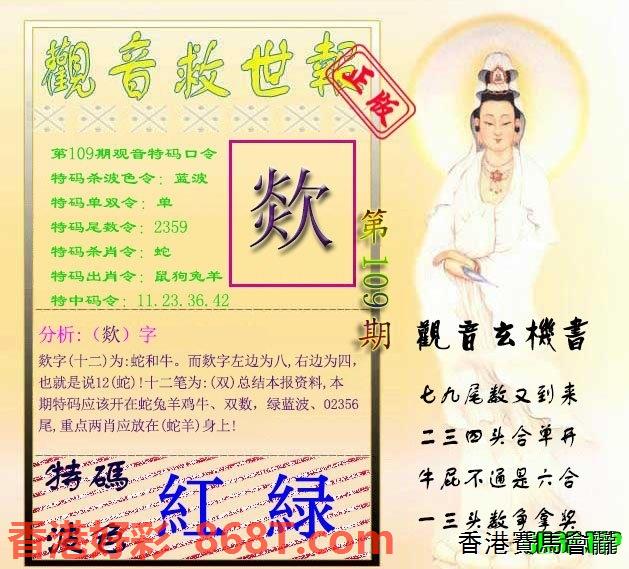 觀音救世報
正版
第109期观音特码口令
特码杀波色令：蓝波
特码单双令：单
特码尾数令：2359
特码杀肖令：蛇
特码出肖令：鼠狗兔羊
特中码令：11.23.36.42
欻
第109期
分析:（欻）字
欻字(十二)为:蛇和牛。而欻字左边为八,右边为四,
也就是说12(蛇)!十二笔为:(双)总结本报资料,本
期特码应该开在蛇兔羊鸡牛、双数，绿蓝波、02356
尾,重点两肖应放在(蛇羊)身上!
特碼
波色
紅 绿
觀音玄機書
七九尾数又到来
二三四头合单开
牛屁不通是六合
一三头数争拿奖
香港好彩-868T.com
香港賽馬會